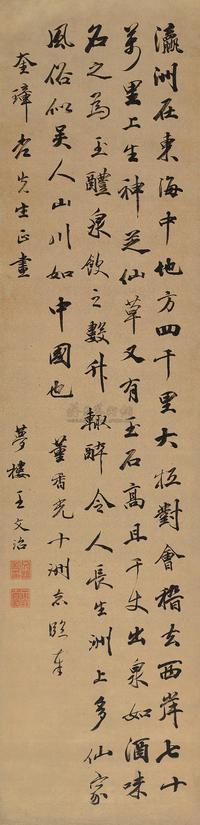 瀛洲在東海中地方四千里大抵對會稽去西岸七十
萬里上生神芝仙草又有玉石高且千丈出泉如酒味
名之為玉醴泉飲之數升輒醉令人長生洲上多仙家
風俗似吳人山川如中國也 董香光十洲志臨奉
奎璋老先生正畫
夢樓王文治